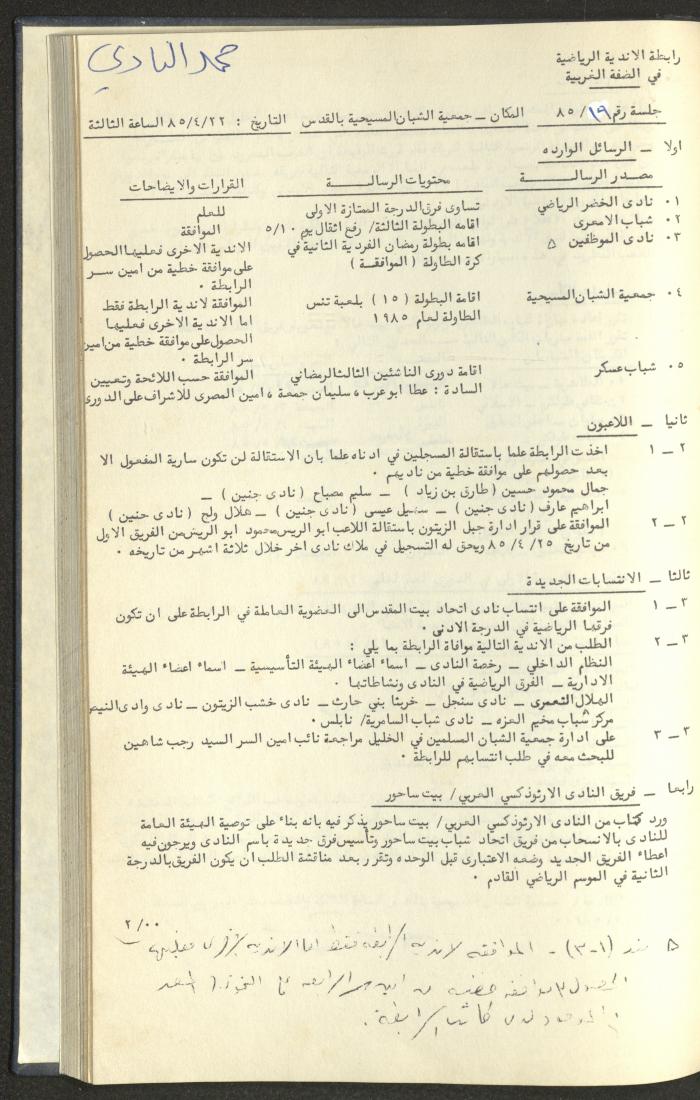 حمد البادي
رابطة الاندية الرياضية
في الضفة الغربية
جلسة رقم ١٩/ ٨٥ المكان ــ جمعية الشبان المسيحية بالقدس التاريخ : ٨٥/٤/٢٢ الساعة الثالثة
اولا ــ الرسائل الوارده
مصدر الرسالة محتويات الرسالة القرارات والايضاحات
١٠ نادى الخضر الرياضي تساوى فرق الدرجة الممتازة الاولى للعلم
٢٠ شباب الامعرى اقامه البطولة الثالثة/ رفع اثقال يوم ٥/١٠ الموافقة
٣٠ نادى الموظفين ۵ اقامه بطولة رمضان الفردية الثانية في الاندية الاخرى فعليها الحصول
كرة الطاولة ( الموافقة ) على موافقة خطية من امين سر
الرابطة ٠
٤٠ جمعية الشبان المسيحية اقامة البطولة ( ١٥ ) بلعبة تنس الموافقة لاندية الرابطة فقط
الطاولة لعام ١٩٨٥ اما الاندية الاخرى فعليها
الحصول على موافقة خطية من امين
سر الرابطة ٠
٥٠ شباب عسكر اقامة دورى الناشئين الثالث الرمضاني الموافقة حسب اللائحة وتعيين
السادة : عطا ابو عرب ، سليمان جمعة ، امين المصرى للاشراف على الدورى
ثانيا ــ اللاعبون
٢ ــ ١ اخذت الرابطة علما باستقالة المسجلين في ادناه علما بان الاستقالة لن تكون سارية المفعول الا
بعد حصولهم على موافقة خطية من ناديهم ٠
جمال محمود حسين ( طارق بن زياد ) ــ سليم مصباح ( نادى جنين ) ــ
ابراهيم عارف ( نادى جنين ) ــ سهيل عيسى ( نادى جنين ) ــ هلال ولج ( نادى جنين )
٢ ــ ٢ الموافقة على قرار ادارة جبل الزيتون باستقالة اللاعب ابو الريس محمود ابو الريش من الفريق الاول
من تاريخ ٢٥/ ٤/ ٨٥ ويحق له التسجيل في ملاك نادى اخر خلال ثلاثة اشهر من تاريخه ٠
ثالثا ــ الانتسابات الجديدة
٣ ــ ١ الموافقة على انتساب نادى اتحاد بيت المقدس الى العضوية العاملة في الرابطة على ان تكون
فرقها الرياضية في الدرجة الادنى ٠
٣ ــ ٢ الطلب من الاندية التالية موافاة الرابطة بما يلي :
النظام الداخلي ــ رخصة النادى ــ اسماء اعضاء الهيئة التأسيسية ــ اسماء اعضاء الهيئة
الادارية ــ الفرق الرياضية في النادى ونشاطاتها ٠
الهلال التعمرى ــ نادى سنجل ــ خربثا بني حارث ــ نادى خشب الزيتون ــ نادى وادى النيص
مركز شباب مخيم العزه ــ نادى شباب السامرية/ نابلس ٠
٣ ــ ٣ على ادارة جمعية الشبان المسلمين في الخليل مراجعة نائب امين السر السيد رجب شاهين
للبحث معه في طلب انتسابهم للرابطة ٠
رابعا ــ فريق النادى الارثوذكسي العربي/ بيت ساحور
ورد كتاب من النادى الارثوذكسي العربي/ بيت ساحور يذكر فيه بانه بناء على توصية الهيئة العامة
للنادى بالانسحاب من فريق اتحاد شباب بيت ساحور وتأسيس فرق جديدة باسم النادى ويرجون فيه
اعطاء الفريق الجديد وضعه الاعتبارى قبل الوحده وتقرر بعد مناقشة الطلب ان يكون الفريق بالدرجة
الثانية في الموسم الرياضي القادم ٠
٢/٠٠
۵ بند (١-٣) - الموافقه لاندية الرابطه فقط اما الانديه الاخرى فعليها
الحصول على موافقه خطيه من امين سر الرابطه
الموجود لدى الرابطة.